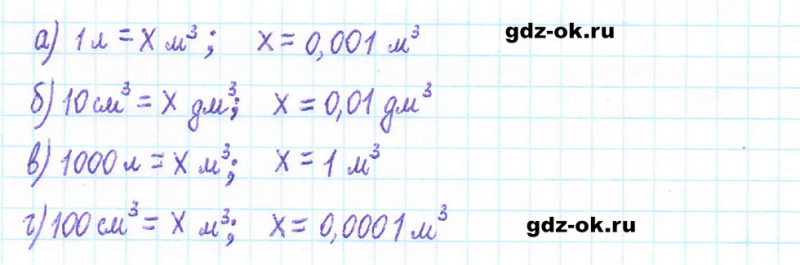 а) 1 л = х м³; х = 0,001 м³ gdz-ok.ru
б) 10 см³ = х дм³; х = 0,01 дм³
в) 1000 л = х м³; х = 1 м³
г) 100 см³ = х м³; х = 0,0001 м³ gdz-ok.ru